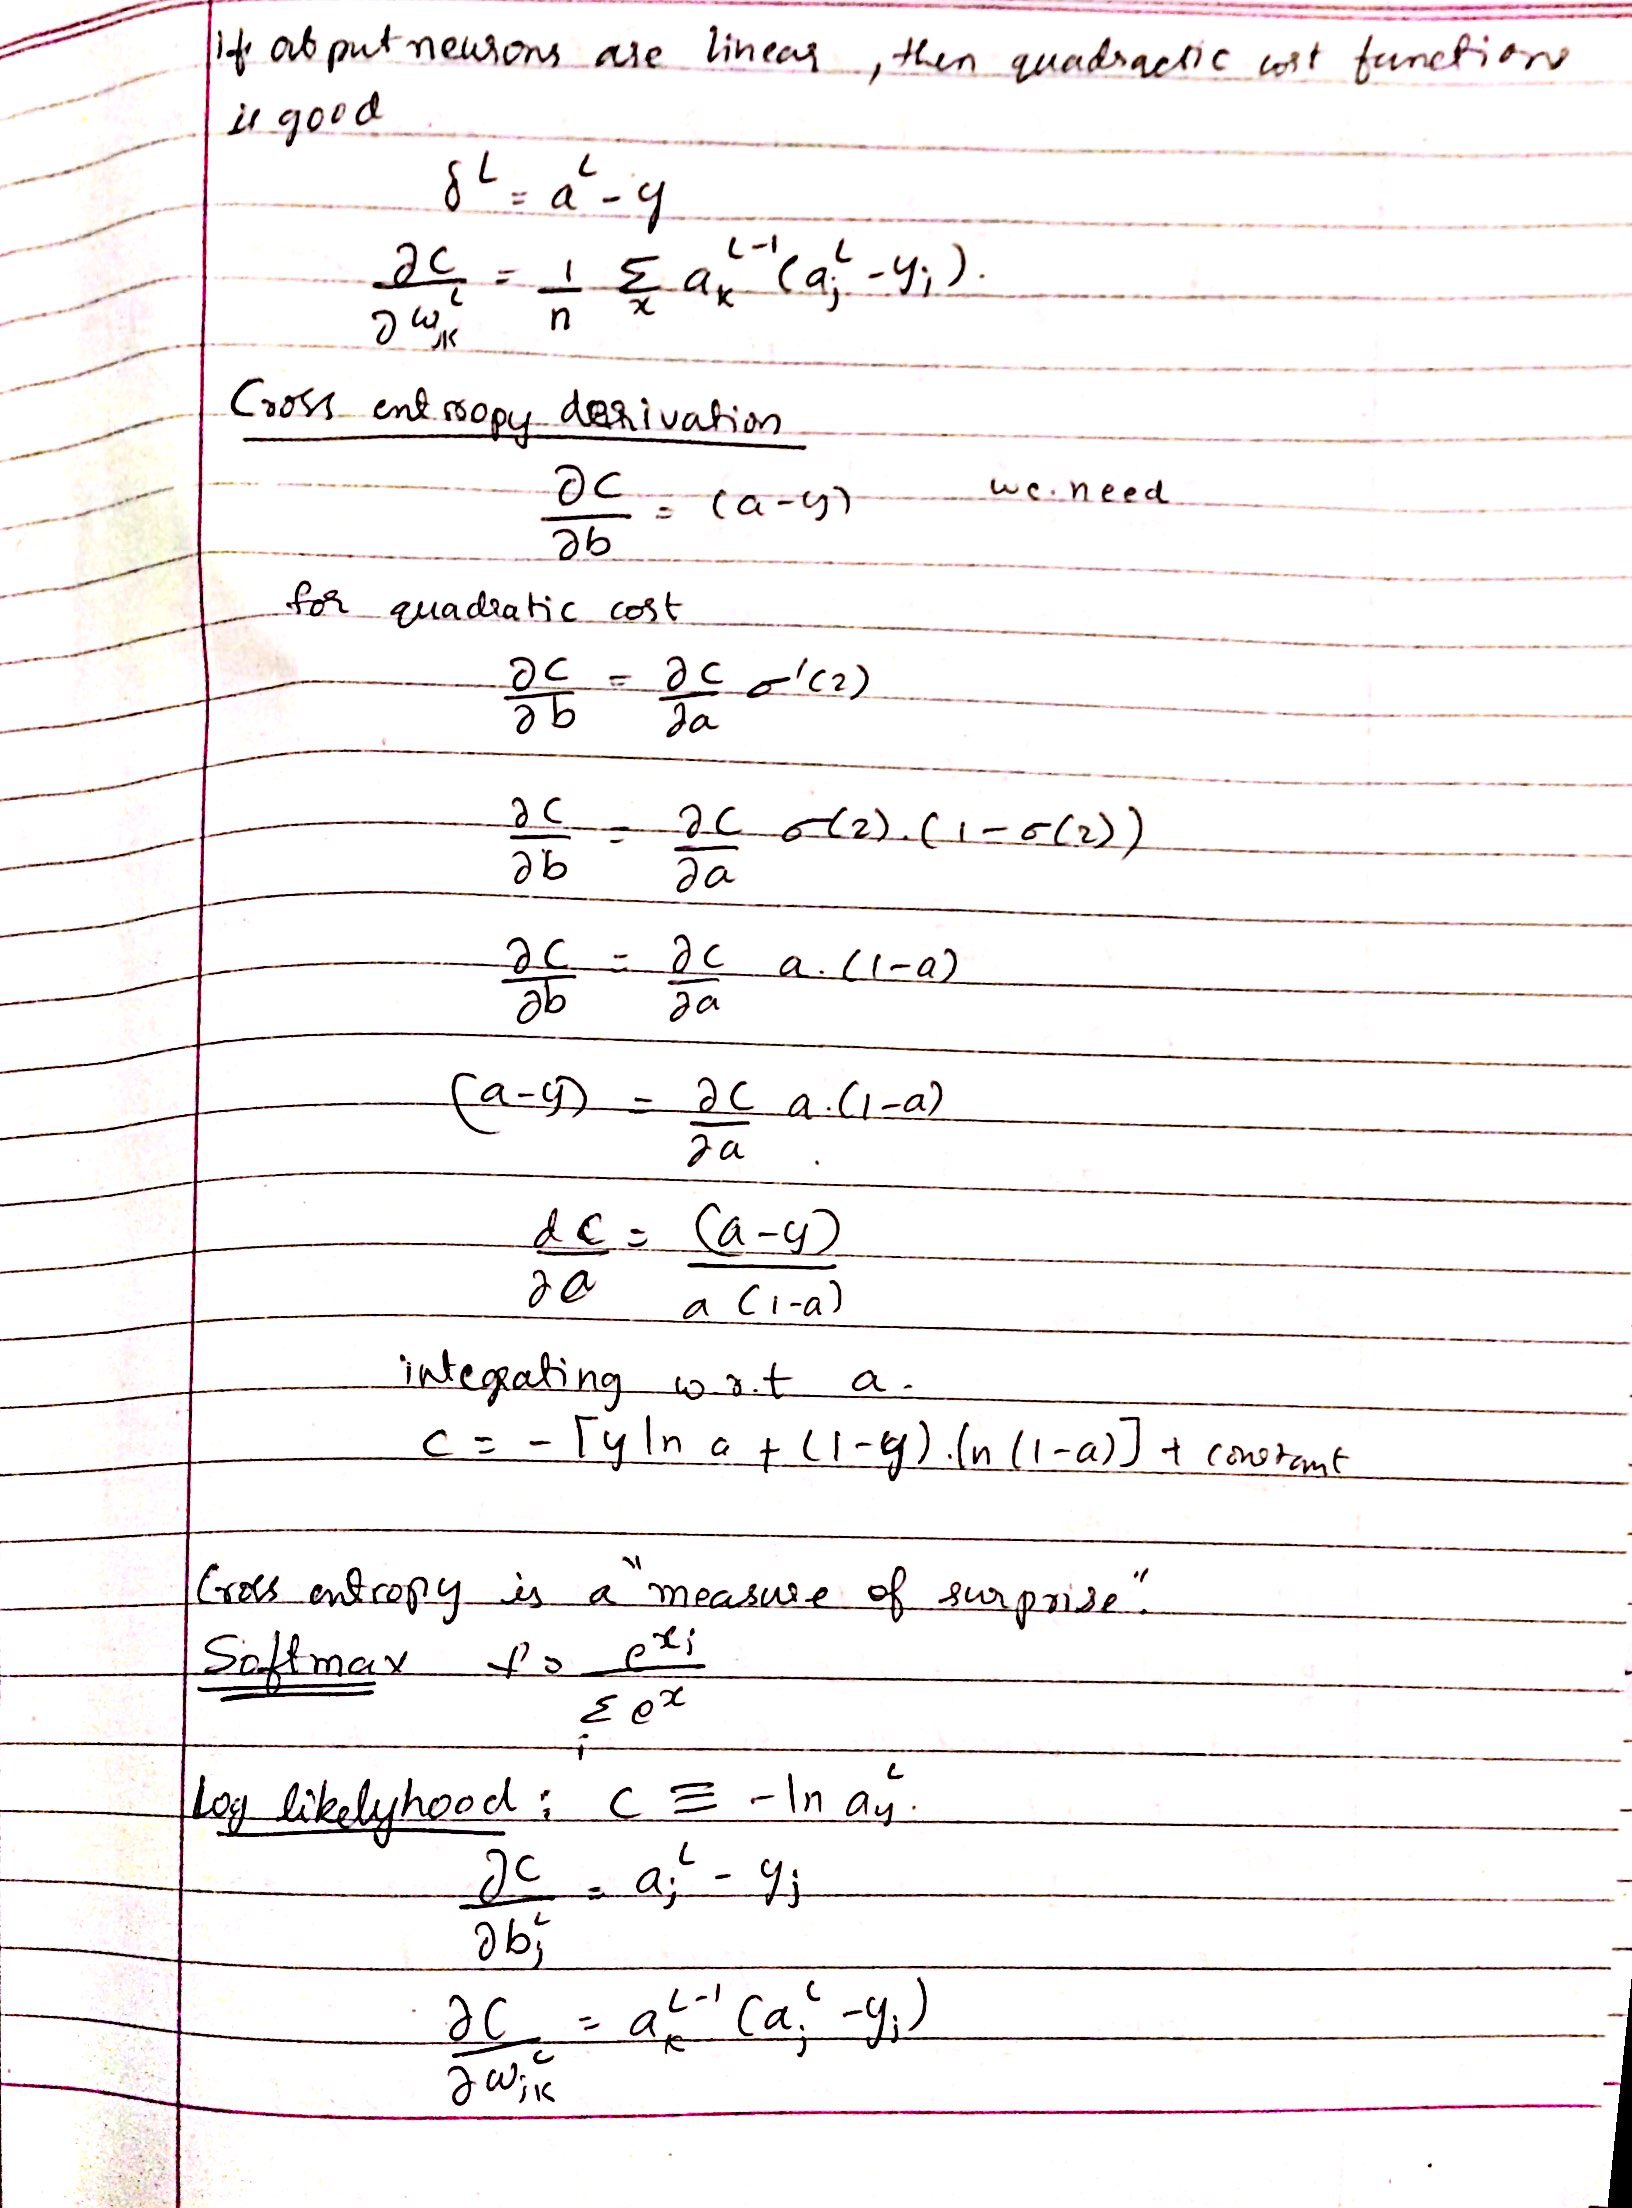 if output neurons are linear, then quadractic cost function
is good
δ^L = a^L - y
∂C/∂w_jk^L = 1/n Σ_x a_k^(L-1) (a_j^L - y_j).
Cross entropy derivation
∂C/∂b = (a-y) we need
for quadratic cost
∂C/∂b = ∂C/∂a σ'(z)
∂C/∂b = ∂C/∂a σ(z).(1-σ(z))
∂C/∂b = ∂C/∂a a.(1-a)
(a-y) = ∂C/∂a a.(1-a)
dC/∂a = (a-y)/a(1-a)
integrating w.r.t a.
C = - [y ln a + (1-y).ln(1-a)] + constant
Cross entropy is a "measure of surprise".
Softmax f = e^(x_i)/Σ_i e^x
Log likelyhood : C ≡ -ln a_y^L.
∂C/∂b_j^L = a_j^L - y_j
∂C/∂w_jk^L = a_k^(L-1) (a_j^L - y_j)